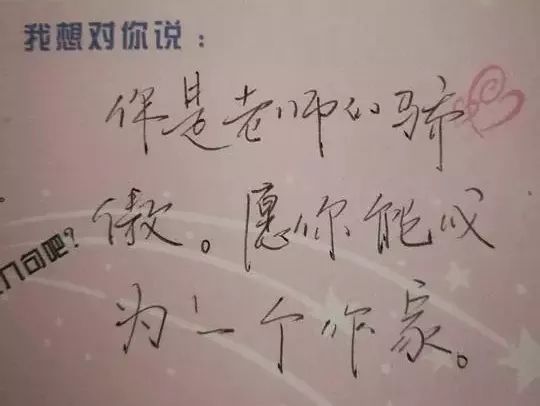 我想对你说：
你是老师的骄
傲。愿你能成
为一个作家。
几句吧？